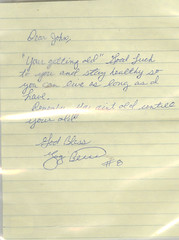 Dear John,
"You getting old" Good Luck
to you and stay healthy so
you can live as long as I
have.
Remember you ain't old untill
your
God Bless
Yogi Berra
#8